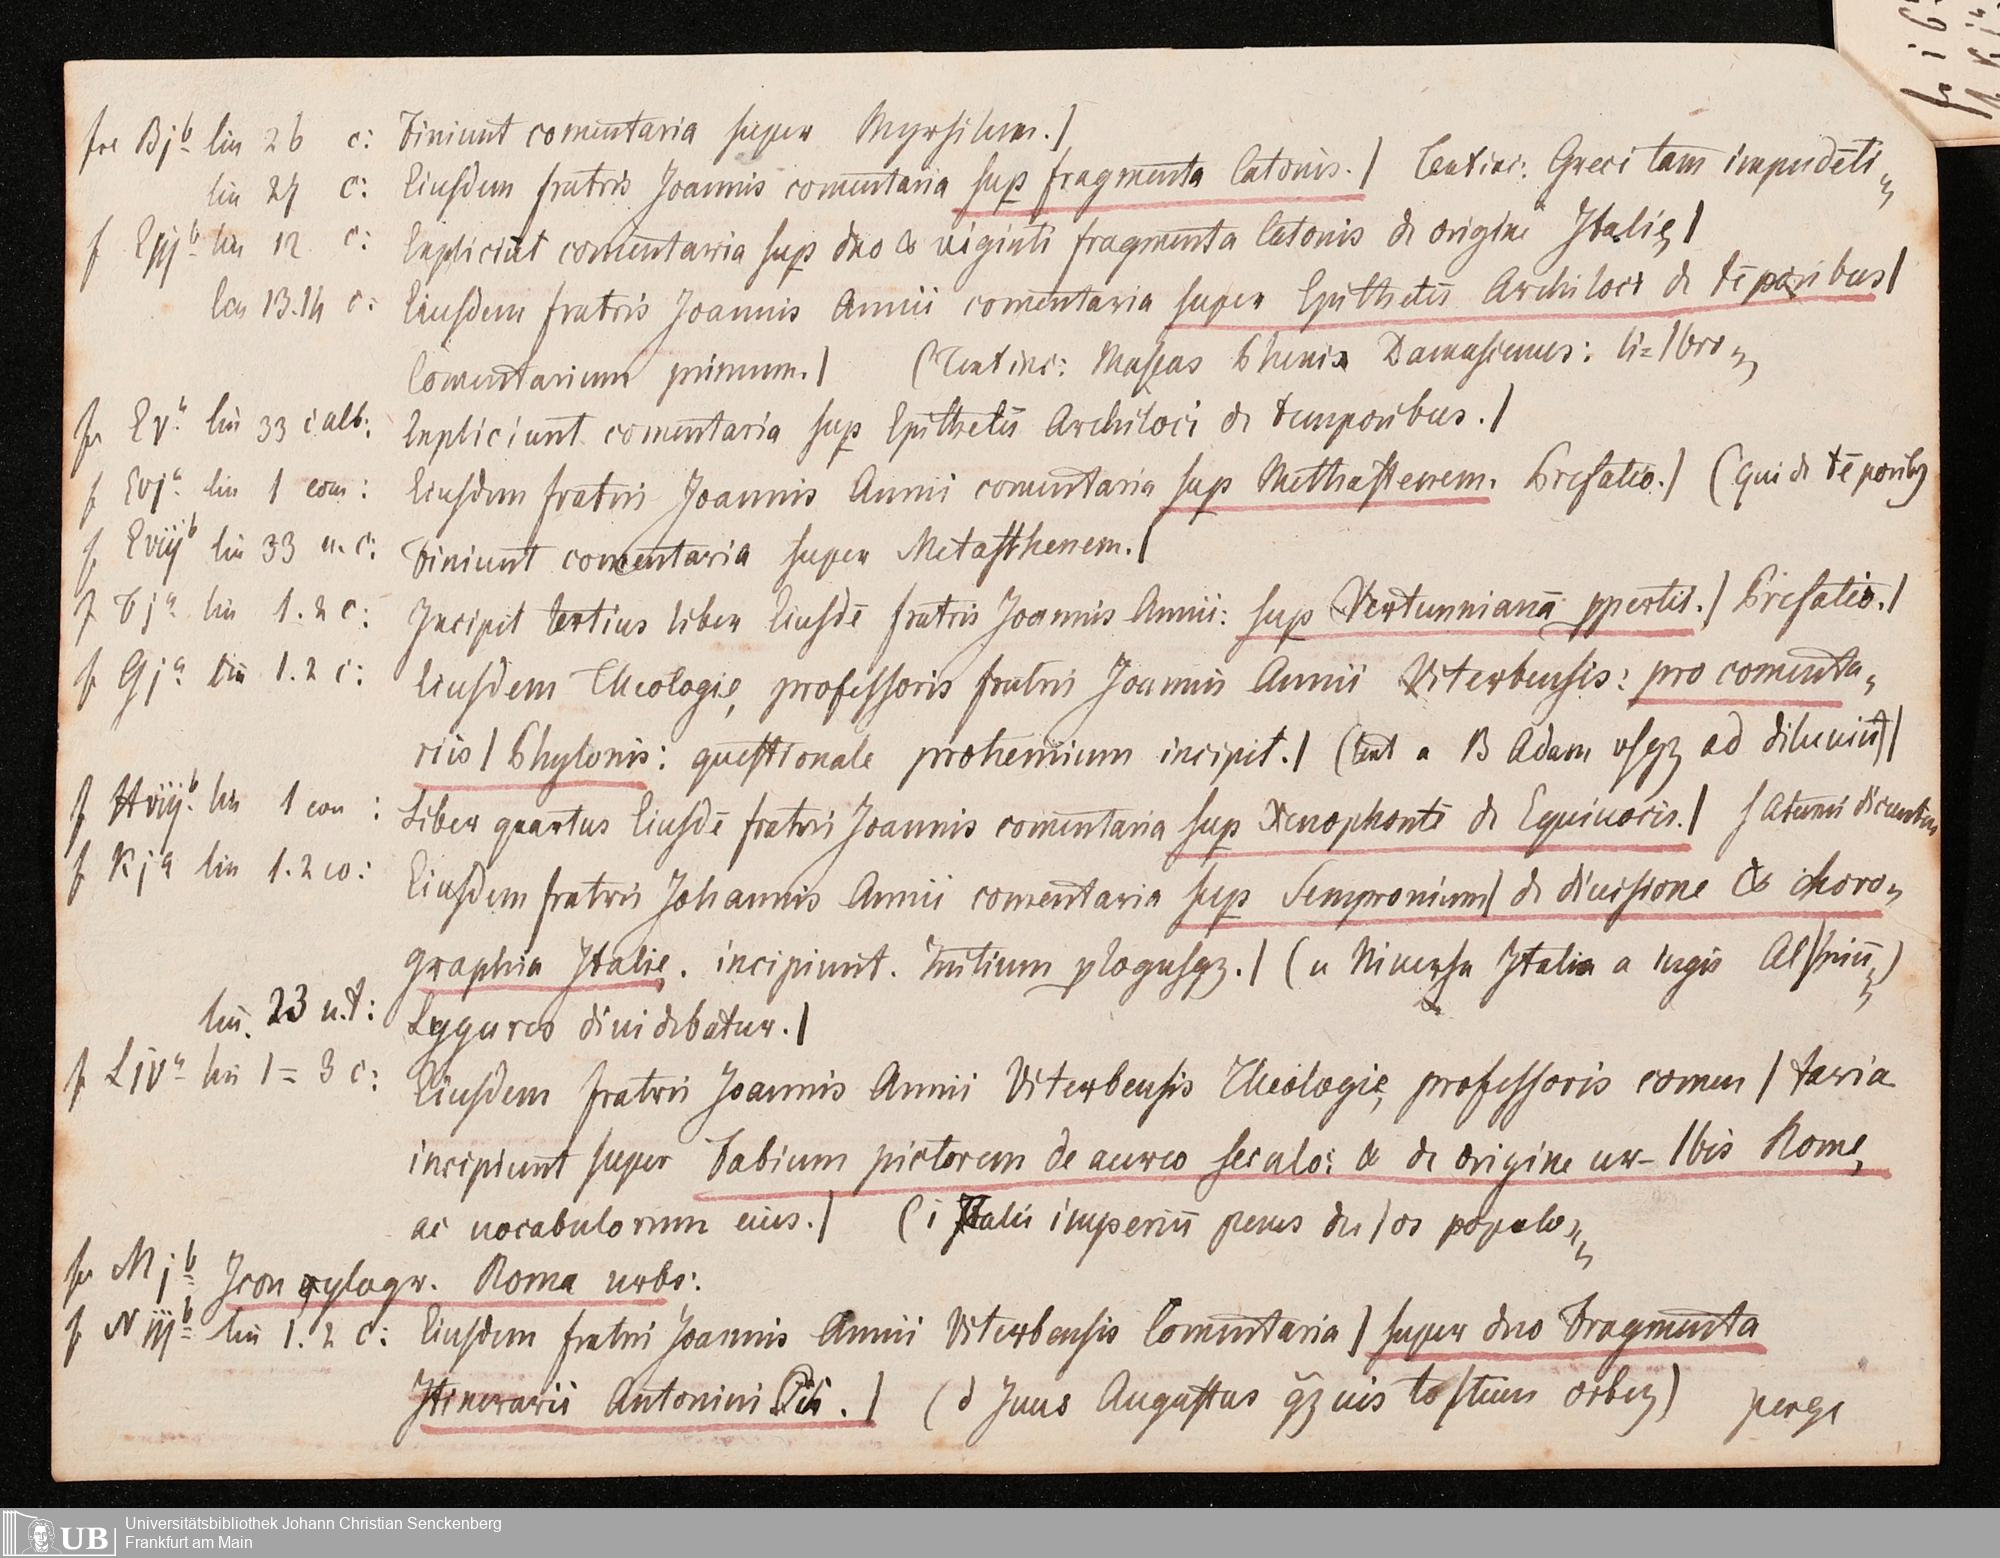 fol Bjb lin 26 c: Finiunt comentaria super Myrsilum.|
lin 27 c: Eiusdem fratris Joannis comentaria sup fragmenta Catonis.| Text inc: Greci tam impudēti
f Eiijb lin 12 c: Expliciūt comentaria sup duo & viginti fragmenta Catonis de origine Italię|
lin 13.14 c: Eiusdem fratris Joannis Annii comentaria super Epithetū Archiloci de tēporibus|
Comentarium primum.| (Text inc: Maseas Phenix Damascenus: li=|bro
f Eva lin 33 c alb: Expliciunt comentaria sup Epithetū Archiloci de temporibus.|
f Evja lin 1 com: Eiusdem fratris Joannis Annii comentaria sup Methasthenem. Prefatio.| (Qui de tēporibȝ
f Eviijb lin 33 u. c: Finiunt comentaria super Metasthenem.|
f Fja lin 1.2 c: Incipit tertius liber Eiusdē fratris Joannis Annii: sup Vertunnianā ppertii.| Prefatio.|
f Gja lin 1.2 c: Eiusdem Theologię professoris fratris Joannis Annii Viterbensis: pro comenta
riis| Phylonis: questionale prohemium incipit.| (text a B Adam vsqȝ ad diluuiū)|
f Hviijb lin 1 com : Liber quartus Eiusdē fratris Joannis comentaria sup Xenophontē de Equiuocis.| SAturni dicuntur
f Kja lin 1.2 co: Eiusdem fratris Johannis Annii comentaria sup Sempronium| de diuisione & choro
graphia Italię. incipiunt. Initium plogusqȝ.| (u Niuersa Italia a iugis Al|piū)
lin. 23 u.t: Lygures diuidebatur.|
f Liva lin 1=3 c: Eiusdem fratris Joannis Annii Viterbensis Theologię professoris comen|taria
incipiunt super Fabium pictorem de aureo seculo: & de origine ur-|bis Romę
ac uocabulorum eius.| (i Italii imperiū penes du|os populo
f Mjb Icon xylogr. Roma urbs:
f Niijb lin 1.2 c: Eiusdem fratris Joannis Annii Viterbensis Comentaria| super duo Fragmenta
Itinerarii Antonini Pii.| (d Iuus Augustus qȝuis to|tum orbeȝ) perge
Universitätsbibliothek Johann Christian Senckenberg
UB
Frankfurt am Main